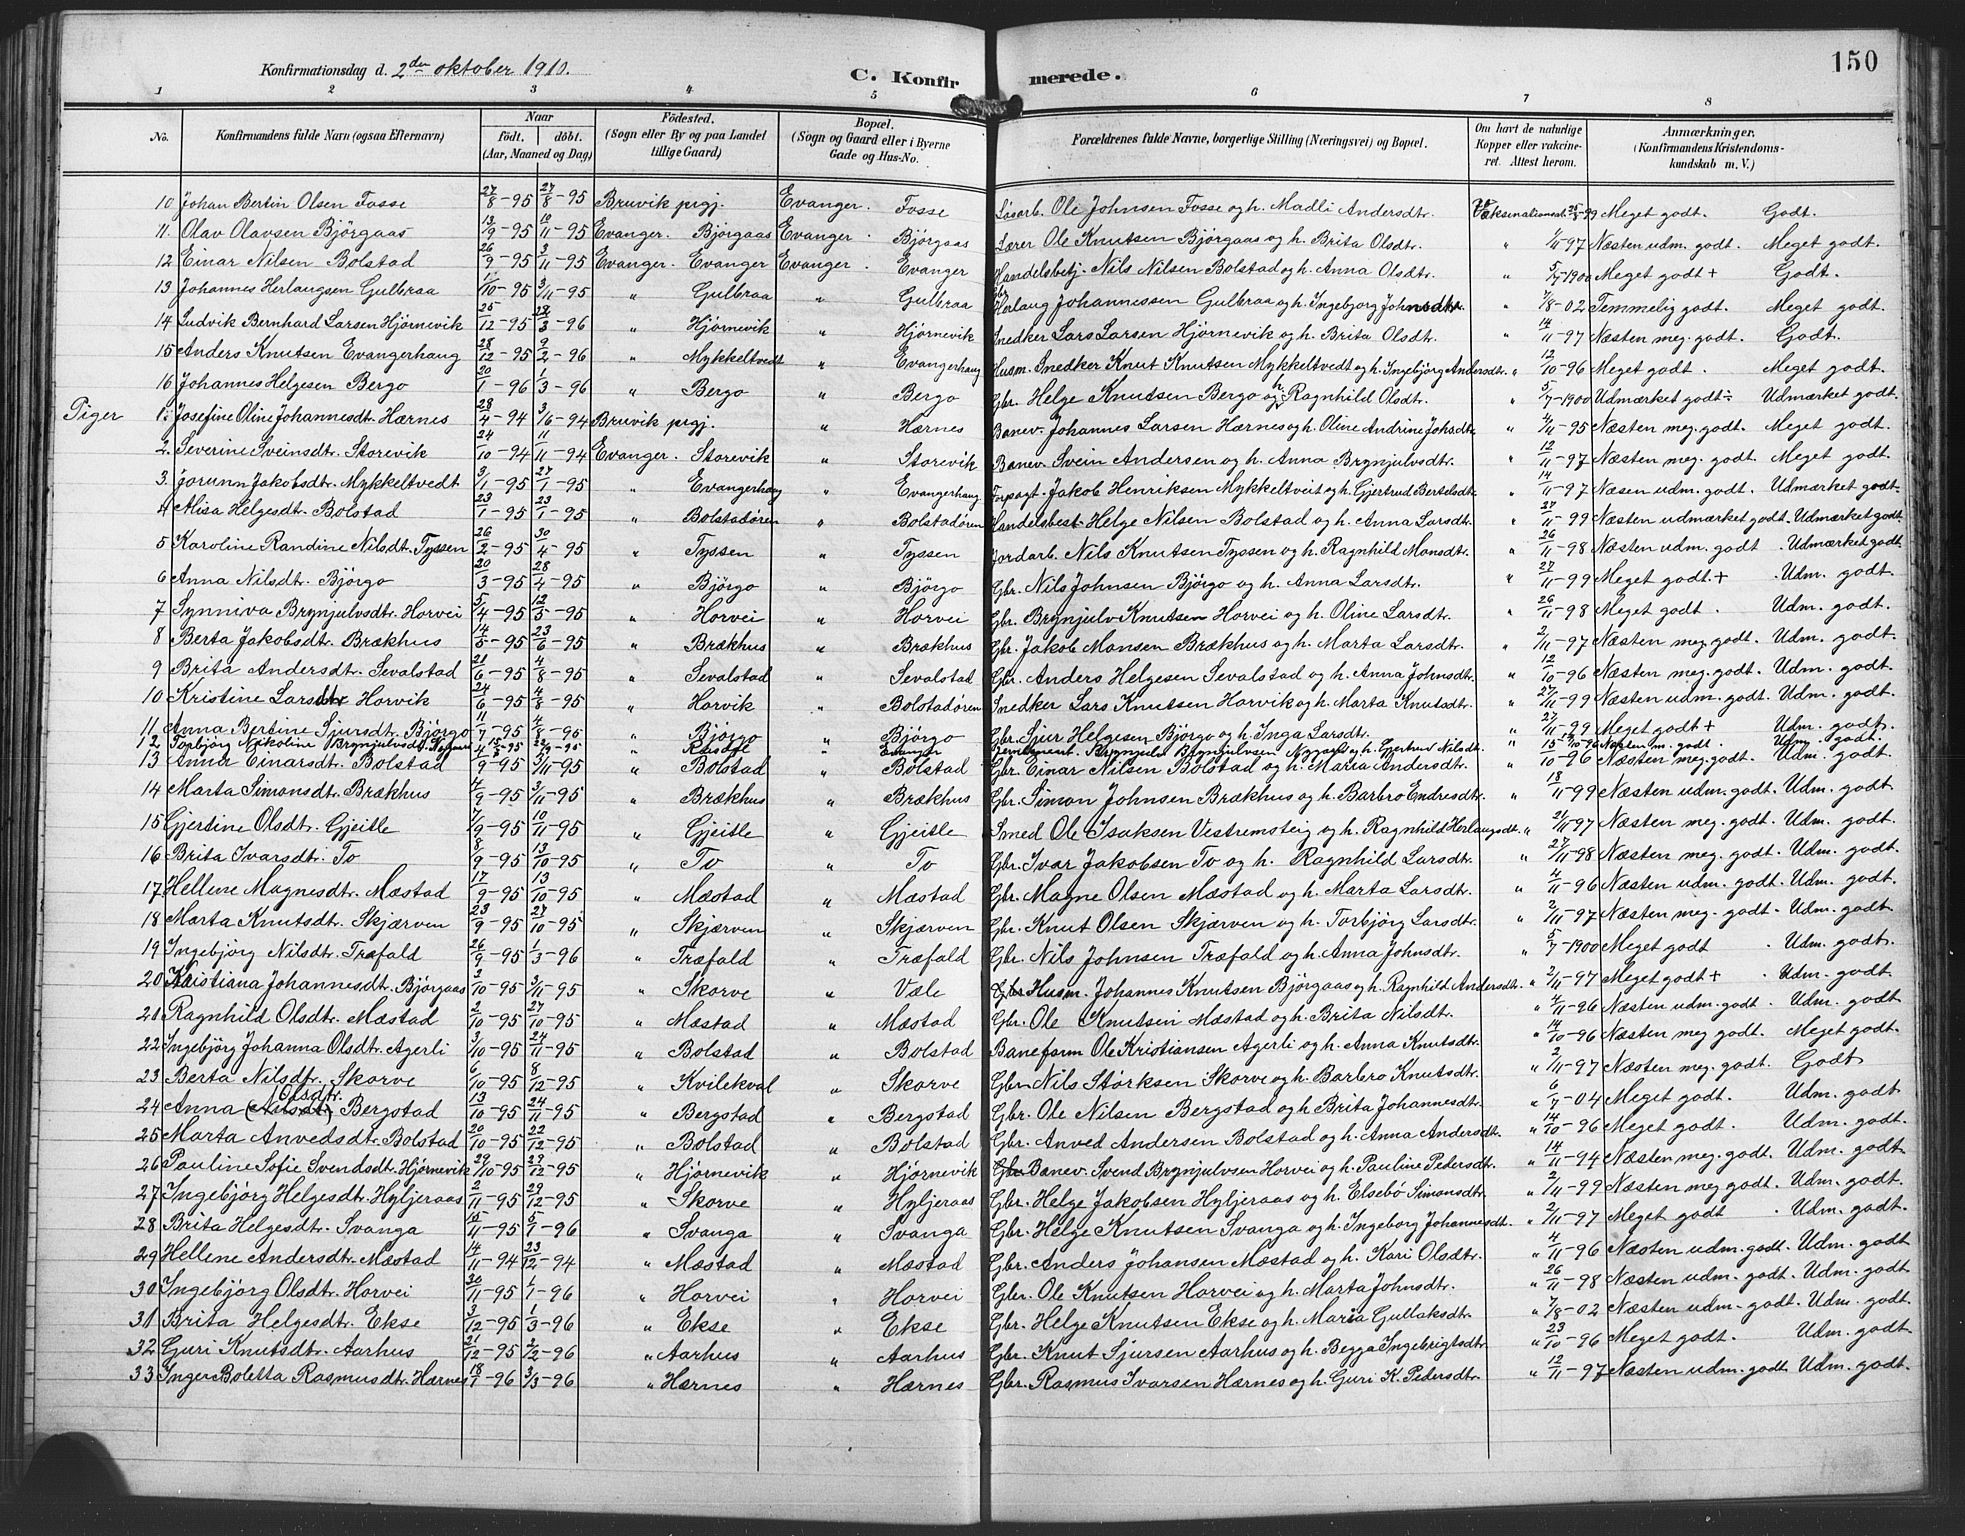 150
Konfirmationsdag d. 2den oktober 1910.
C. Konfirmerede.
1 2 3 4 5 6 7 8
No. Konfirmandens fulde Navn (ogsaa Efternavn) Naar født. døbt. (Aar, Maaned og Dag) Fødested. (Sogn eller By og paa Landet tillige Gaard) Bopæl. (Sogn og Gaard eller i Byerne Gade og Hus-No. Forældrenes fulde Navne, borgerlige Stilling (Næringsvei) og Bopæl. Om havt de naturlige Kopper eller vaccineret. Attest herom. Anmærkninger. (Konfirmandens Kristendomskundskab m. V.)
10 Johan Bertin Olsen Fosse 27/8-95 27/8-95 Bruvik prgj. Evanger. Fosse Løsarb. Ole Johnsen Fosse og h. Madli Andersdtr. Meget godt. Godt.
11. Olav Olavsen Bjørgaas 13/9-95 10/11-95 Evanger. Bjørgaas Evanger. Bjørgaas Lærer Ole Knutsen Bjørgaas og h. Brita Olsdtr. " /11-97 Næsten udm. godt. Meget godt.
12 Einar Nilsen Bolstad 26/9-95 3/11-95 Evanger. Evanger Evanger. Evanger Handelsbetj. Nils Nilsen Bolstad og h. Anna Olsdtr. " 5/7-1900 Meget godt + Godt.
13 Johannes Herlaugsen Gulbraa /10-95 3/11-95 " Gulbraa " Gulbraa Herlaug Johannessen Gulbraa og h. Ingebjorg Johnsdtr. " 7/8-02 Temmelig godt. Meget godt.
14 Ludvik Bernhard Larsen Hjørnevik 25/12-95 /3-96 " Hjørnevik " Hjørnevik Snedker Lars Larsen Hjørnevik og h. Brita Olsdt. " 14/11-97 Næsten meg. godt. Godt.
15 Anders Knutsen Evangerhaug 28/12-95 9/2-96 " Mykkeltvedt " Evangerhaug Husm. Snedker Knut Knutsen Mykkeltvedt og h. Ingebjörg Andersdt. " 12/10-96 Meget godt. Meget godt.
16 Johannes Helgesen Bergo 20/1-96 1/3-96 " Bergo " Bergo Gbr. Helge Knutsen Bergo og h. Ragnhild Olsdt. " 5/7-1900 Udmærket godt÷ Udmærket godt.
Piger
1. Josefine Oline Johannesdt. Hærnes 28/4-94 3/6-94 Bruvik prgj. " Hærnes Banev. Johannes Larsen Hærnes og h. Oline Andrine Johsdt. " 4/11-95 Næsten meg. godt. Meget godt.
2. Severine Sveinsdt. Storevik 24/10-94 11/11-94 Evanger. Storevik " Storevik Banev. Svein Andersen og h. Anna Brynjulvsdtr. " 12/11-97 Næsten meg. godt. Meget godt.
3. Jorunn Jakobsdt. Mykkeltvedt 3/1-95 27/1-95 " Evangerhaug " Evangerhaug Forpagt. Jakob Henriksen Mykkeltveit og h. Gjertrud Bertelsdt. " 14/11-97 Næsen udm. godt. Udmærket godt.
4 Alisa Helgesdt. Bolstad 23/1-95 23/1-95 " Bolstadøren " Bolstadøren Handelsbest. Helge Nilsen Bolstad og h. Anna Larsdt. " 27/11-99 Næsten udmærket godt. Udmærket godt.
5 Karoline Randine Nilsdt. Tyssen 26/2-95 30/4-95 " Tyssen " Tyssen Jordarb. Nils Knutsen Tyssen og h. Ragnhild Monsdtr. " 26/11-98 Næsten udm. godt. Udmærket godt.
6 Anna Nilsdt. Bjørgo 20/3-95 28/4-95 " Bjørgo " Bjørgo Gbr. Nils Johnsen Bjørgo og h. Anna Larsdt. " 27/11-99 Meget godt + Udm. godt.
7 Synniva Brynjulvsdtr. Horvei 5/4-95 12/5-95 " Horvei " Horvei Gbr. Brynjulv Knutsen Horvei og h. Oline Larsdt. " 26/11-98 Meget godt. Udm. godt.
8 Berta Jakobsdt. Brækhus 14/5-95 23/6-95 " Brækhus " Brækhus Gbr. Jakob Monsen Brækhus og h. Marta Larsdt. " 2/11-97 Næsten meg. godt. Udm. godt.
9 Brita Andersdt. Sevalstad 21/6-95 4/8-95 " Sevalstad " Sevalstad Gbr. Anders Helgesen Sevalstad og h. Anna Johnsdt. " 12/10-96 Næsten meg. godt. Udm. godt.
10 Kristine Larsdtr Horvik 24/6-95 4/8-95 " Horvik " Bolstadøren Snedker Lars Knutsen Horvik og h. Marta Knutsdt. " 27/11-99 Næsten udm. godt. Udm. godt.
11. Anna Bertine Sjursdt. Bjørgo 11/7-95 4/8-95 " Bjørgo " Bjørgo Gbr. Sjur Helgesen Bjørgo og h. Inga Larsdt. " 27/11-99 Meget godt + Udm. godt.
12 Torbjörg Nikoline Brynjulvsdt. " Brynjulv Brynjulvsen og h. Gjertrud Nilsdt. " Næsten m. godt. Udm. godt.
13 Anna Einarsdt. Bolstad 4/9-95 3/11-95 " Bolstad " Bolstad Gbr. Einar Nilsen Bolstad og h. Maria Andersdt. " /10-96 Næsten meg. godt. Udm. godt.
14 Marta Simonsdt. Brækhus 4/9-95 3/11-95 " Brækhus " Brækhus Gbr. Simon Johnsen Brækhus og h. Barbro Endresdt. " 18/11-99 Næsten udm. godt. Udm. godt.
15 Gjertine Olsdt. Gjeitle 7/9-95 10/11-95 " Gjeitle " Gjeitle Smed Ole Isaksen Vestremsteig og h. Ragnhild Herlaugsdt. " 2/11-97 Næsten meg. godt. Udm. godt.
16 Brita Ivarsdt. To 8/9-95 13/10-95 " To " To Gbr. Ivar Jakobsen To og h. Ragnhild Larsdt. " 27/11-98 Næsten meg. godt. Udm. godt.
17 Hellene Magnesdt. Mæstad 17/9-95 13/10-95 " Mæstad " Mæstad Gbr. Magne Olsen Mæstad og h. Marta Larsdt. " 4/11-96 Næsten udm. godt. Udm. godt.
18 Marta Knutsdt. Skjærven 23/9-95 27/10-95 " Skjærven " Skjærven Gbr. Knut Olsen Skjærven og h. Torbjörg Larsdt. " 2/11-97 Næsten meg. godt. Udm. godt.
19 Ingebjörg Nilsdt. Træfald 26/9-95 1/3-96 " Træfald " Træfald Gbr. Nils Johnsen Træfald og h. Anna Johnsdt. " 5/7-1900 Meget godt. Udm. godt.
20 Kristiana Johannesdt. Bjørgaas 3/10-95 3/11-95 " Skorve " Væle Gbr Husm. Johannes Knutsen Bjørgaas og h. Ragnhild Andersdt. " 2/11-97 Meget godt + Udm. godt
21 Ragnhild Olsdt. Mæstad 2/10-95 27/10-95 " Mæstad " Mæstad Gbr. Ole Knutsen Mæstad og h. Brita Nilsdt. " 4/11-96 Næsten udm. godt. Udm. godt
22 Ingebjörg Johanna Olsdt. Agerli 3/10-95 24/11-95 " Bolstad " Bolstad Baneform Ole Kristiansen Agerli og h. Anna Knutsdt. " 14/10-96 Næsten meg godt. Meget godt.
23 Berta Nilsdtr. Skorve 6/10-95 8/12-95 " Kvilekval " Skorve Gbr Nils Størksen Skorve og h. Barbro Knutsdt. " 2/11-97 Næsten meg. godt. Godt
24 Anna (Nilsdt) Olsdtr. Bergstad 13/10-95 24/11-95 " Bergstad " Bergstad Gbr. Ole Nilsen Bergstad og h. Brita Johannesdt. " 6/7-04 Meget godt. Udm. godt.
25 Marta Anvedsdt. Bolstad 20/10-95 22/12-95 " Bolstad " Bolstad Gbr. Anved Andersen Bolstad og h. Anna Andersdt. " 14/10-96 Meget godt. Udm. godt.
26 Pauline Sofie Svendsdt. Hjørnevik 29/10-95 27/12-95 " Hjørnevik " Hjørnevik Gbr Banev. Svend Brynjulvsen Horvei og h. Pauline Pedersdt. " 14/11-94 Næsten meg. godt. Udm. godt.
27 Ingebjörg Helgesdt. Hyljeraas 2/11-95 29/12-95 " Skorve " Hyljeraas Gbr. Helge Jakobsen Hyljeraas og h. Elsebö Simonsdt. " 2/11-99 Næsten meg godt. Udm. godt.
28 Brita Helgesdt. Svanga 15/11-95 5/1-96 " Svanga " Svanga Gbr. Helge Knutsen Svanga og h. Ingeborg Johannesdt. " 2/11-97 Meget godt. Udm. godt.
29 Hellene Andersdt. Mæstad 14/11-94 23/12-94 " Mæstad " Mæstad Gbr. Anders Johansen Mæstad og h. Kari Olsdt. " 4/11-96 Næsten udm. godt. Udm. godt.
30 Ingebjörg Olsdt. Horvei 30/11-95 1/1-96 " Horvei " Horvei Gbr. Ole Knutsen Horvei og h. Marta Johnsdt. " 26/11-98 Næsten udm. godt. Udm. godt.
31 Brita Helgesdt. Ekse 3/12-95 1/3-96 " Ekse " Ekse Gbr. Helge Knutsen Ekse og h. Maria Gullaksdt. " 7/8-02 Næsten udm. godt. Udm. godt.
32 Guri Knutsdt. Aarhus 21/12-95 2/2-96 " Aarhus " Aarhus Gbr. Knut Sjursen Aarhus og h. Begga Ingebrigtsdt. " 23/10-96 Meget godt. Udm. godt.
33 Inger Boletta Rasmusdt. Hærnes 18/1-96 3/3-96 " Hærnes " Hærnes Gbr. Rasmus Ivarsen Hærnes og h. Guri K. Pedersdt. " 12/11-97 Næsten udm. godt. Udm. godt.